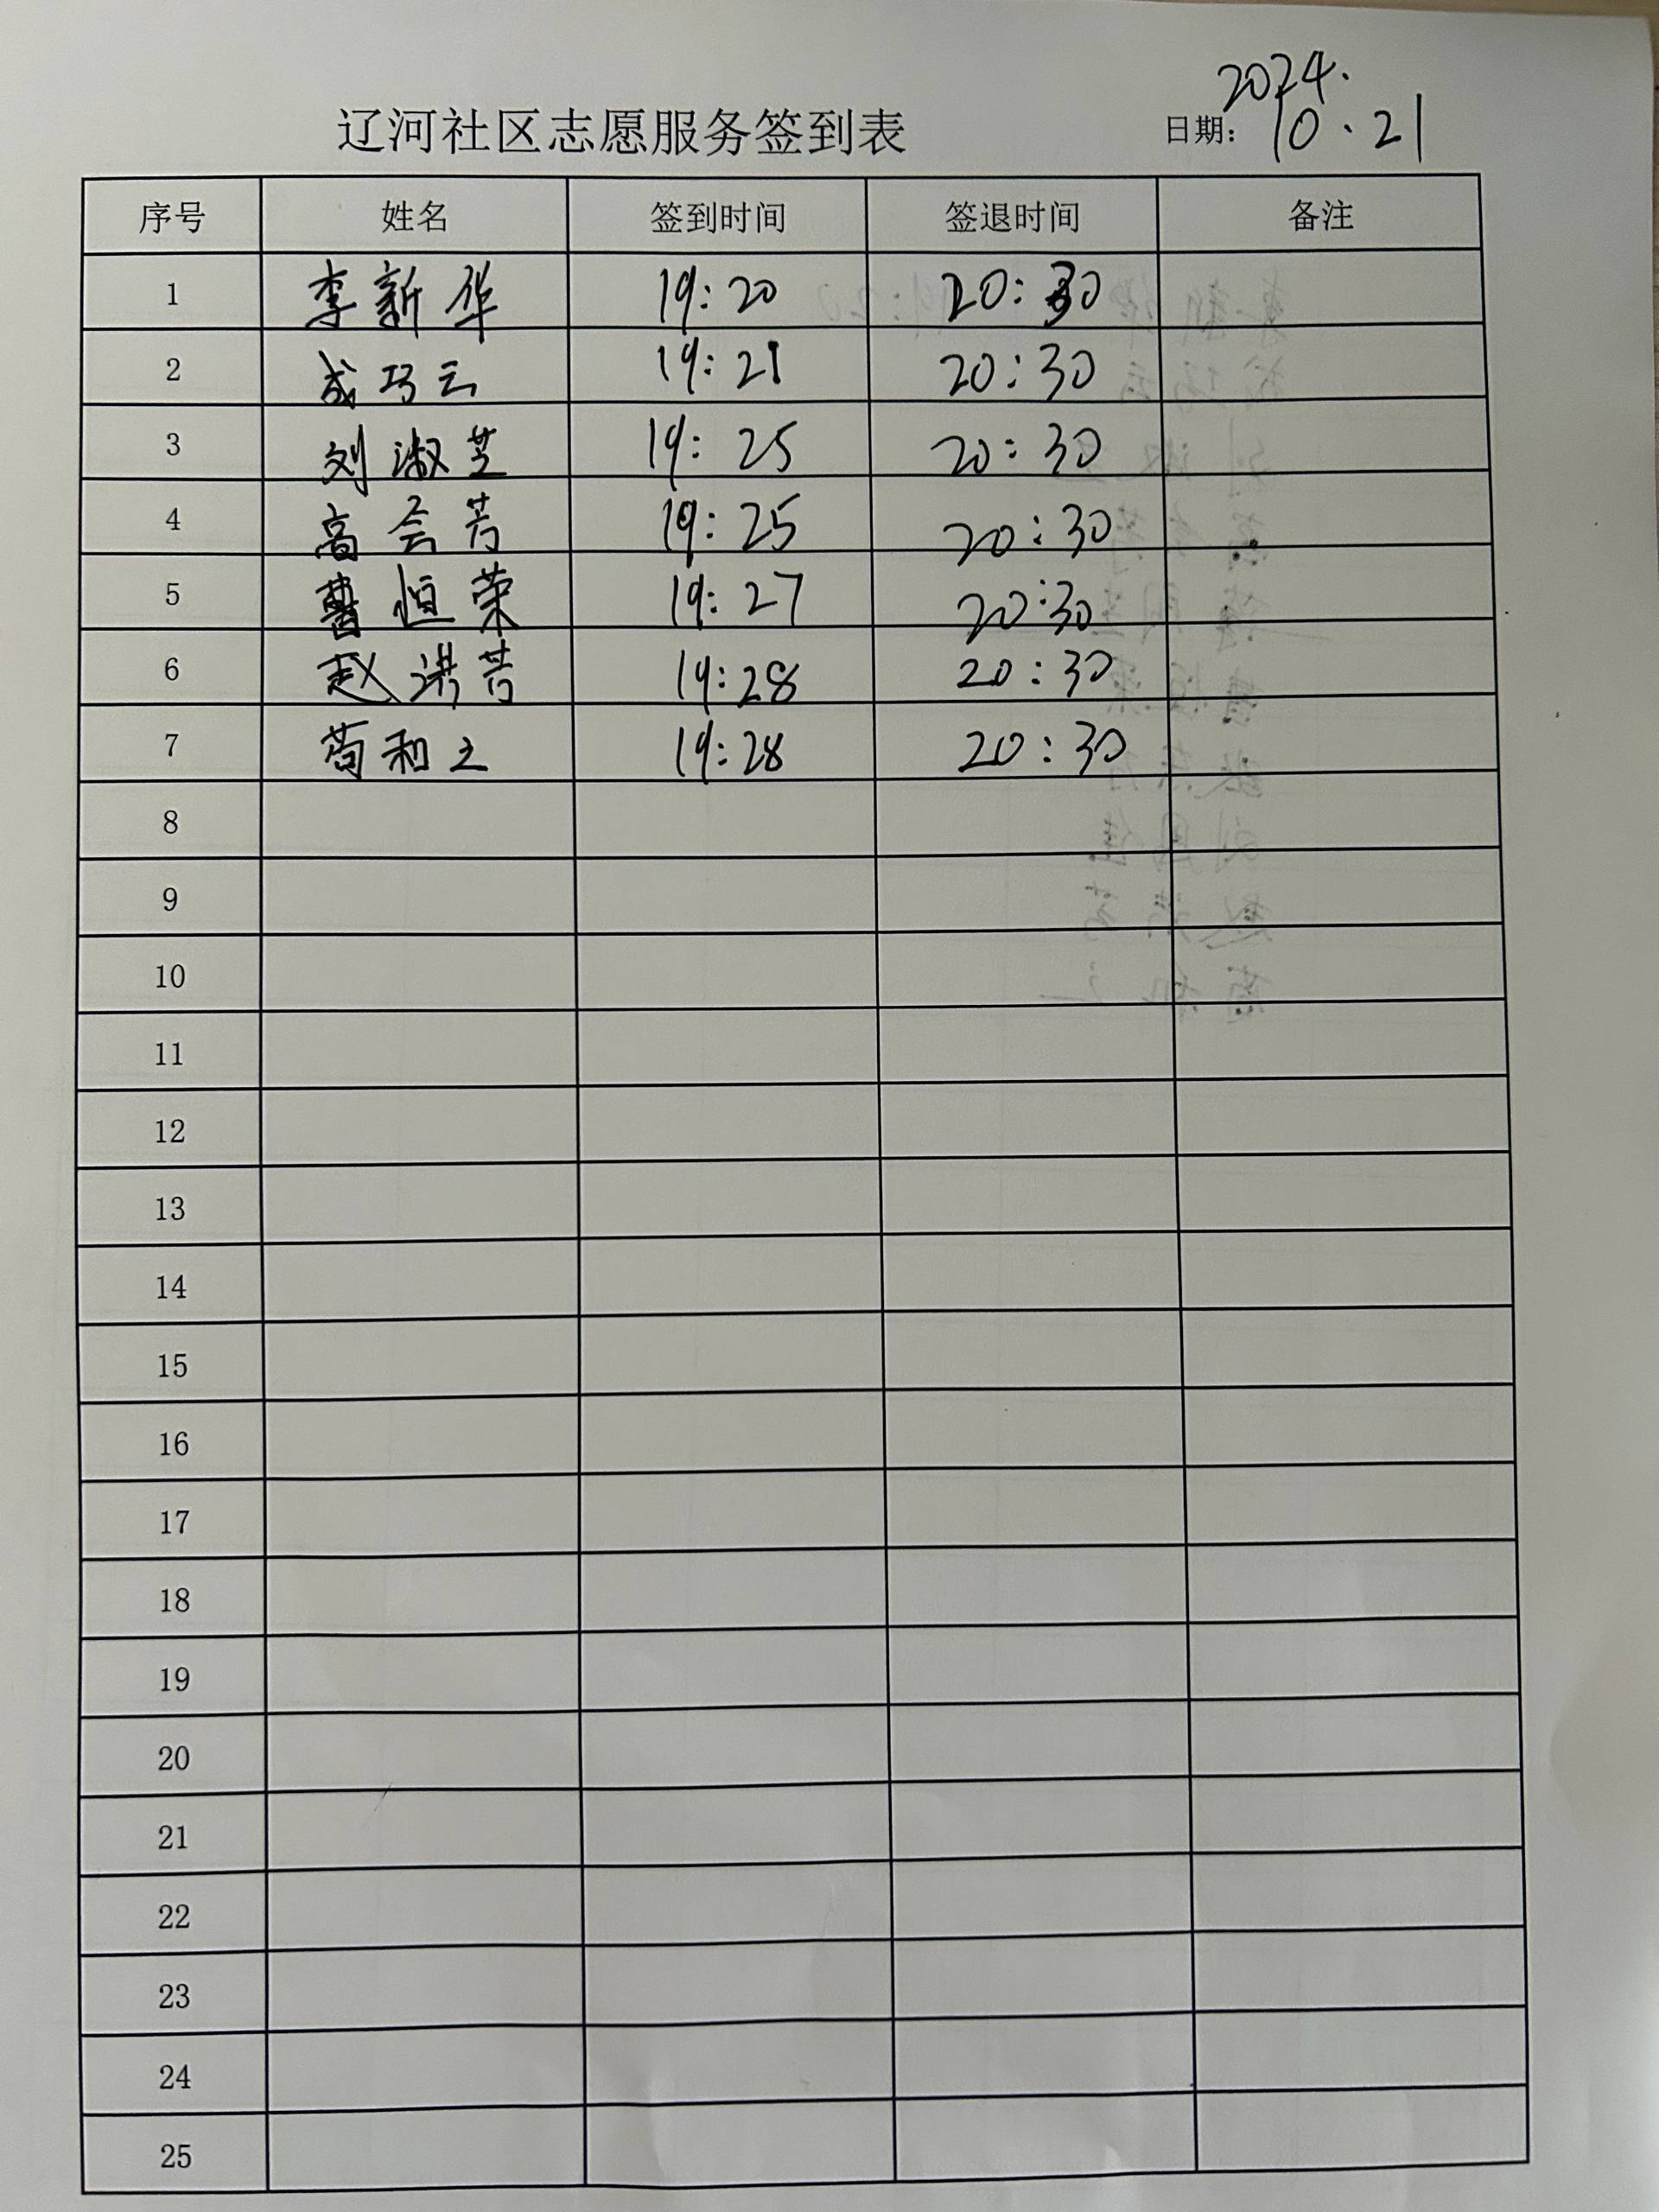 2024.
辽河社区志愿服务签到表 日期: 10.21
序号 姓名 签到时间 签退时间 备注
1 李新华 19:20 20:30
2 成巧云 19:21 20:30
3 刘淑芝 19:25 20:30
4 高会芳 19:25 20:30
5 曹恒荣 19:27 20:30
6 赵洪芳 19:28 20:30
7 苟和之 19:28 20:30
8
9
10
11
12
13
14
15
16
17
18
19
20
21
22
23
24
25